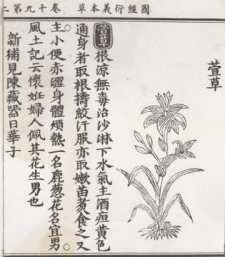 圖經衍義本草 卷十九第二
萱草
萱草 根涼無毒治沙淋下水氣主酒疸黃色
通身者取根擣絞汁服亦取嫩苗煮食之又
主小便赤澀身體煩熱一名鹿葱花名宜男
風土記云懷姙婦人佩其花生男也
新補見陳藏器日華子